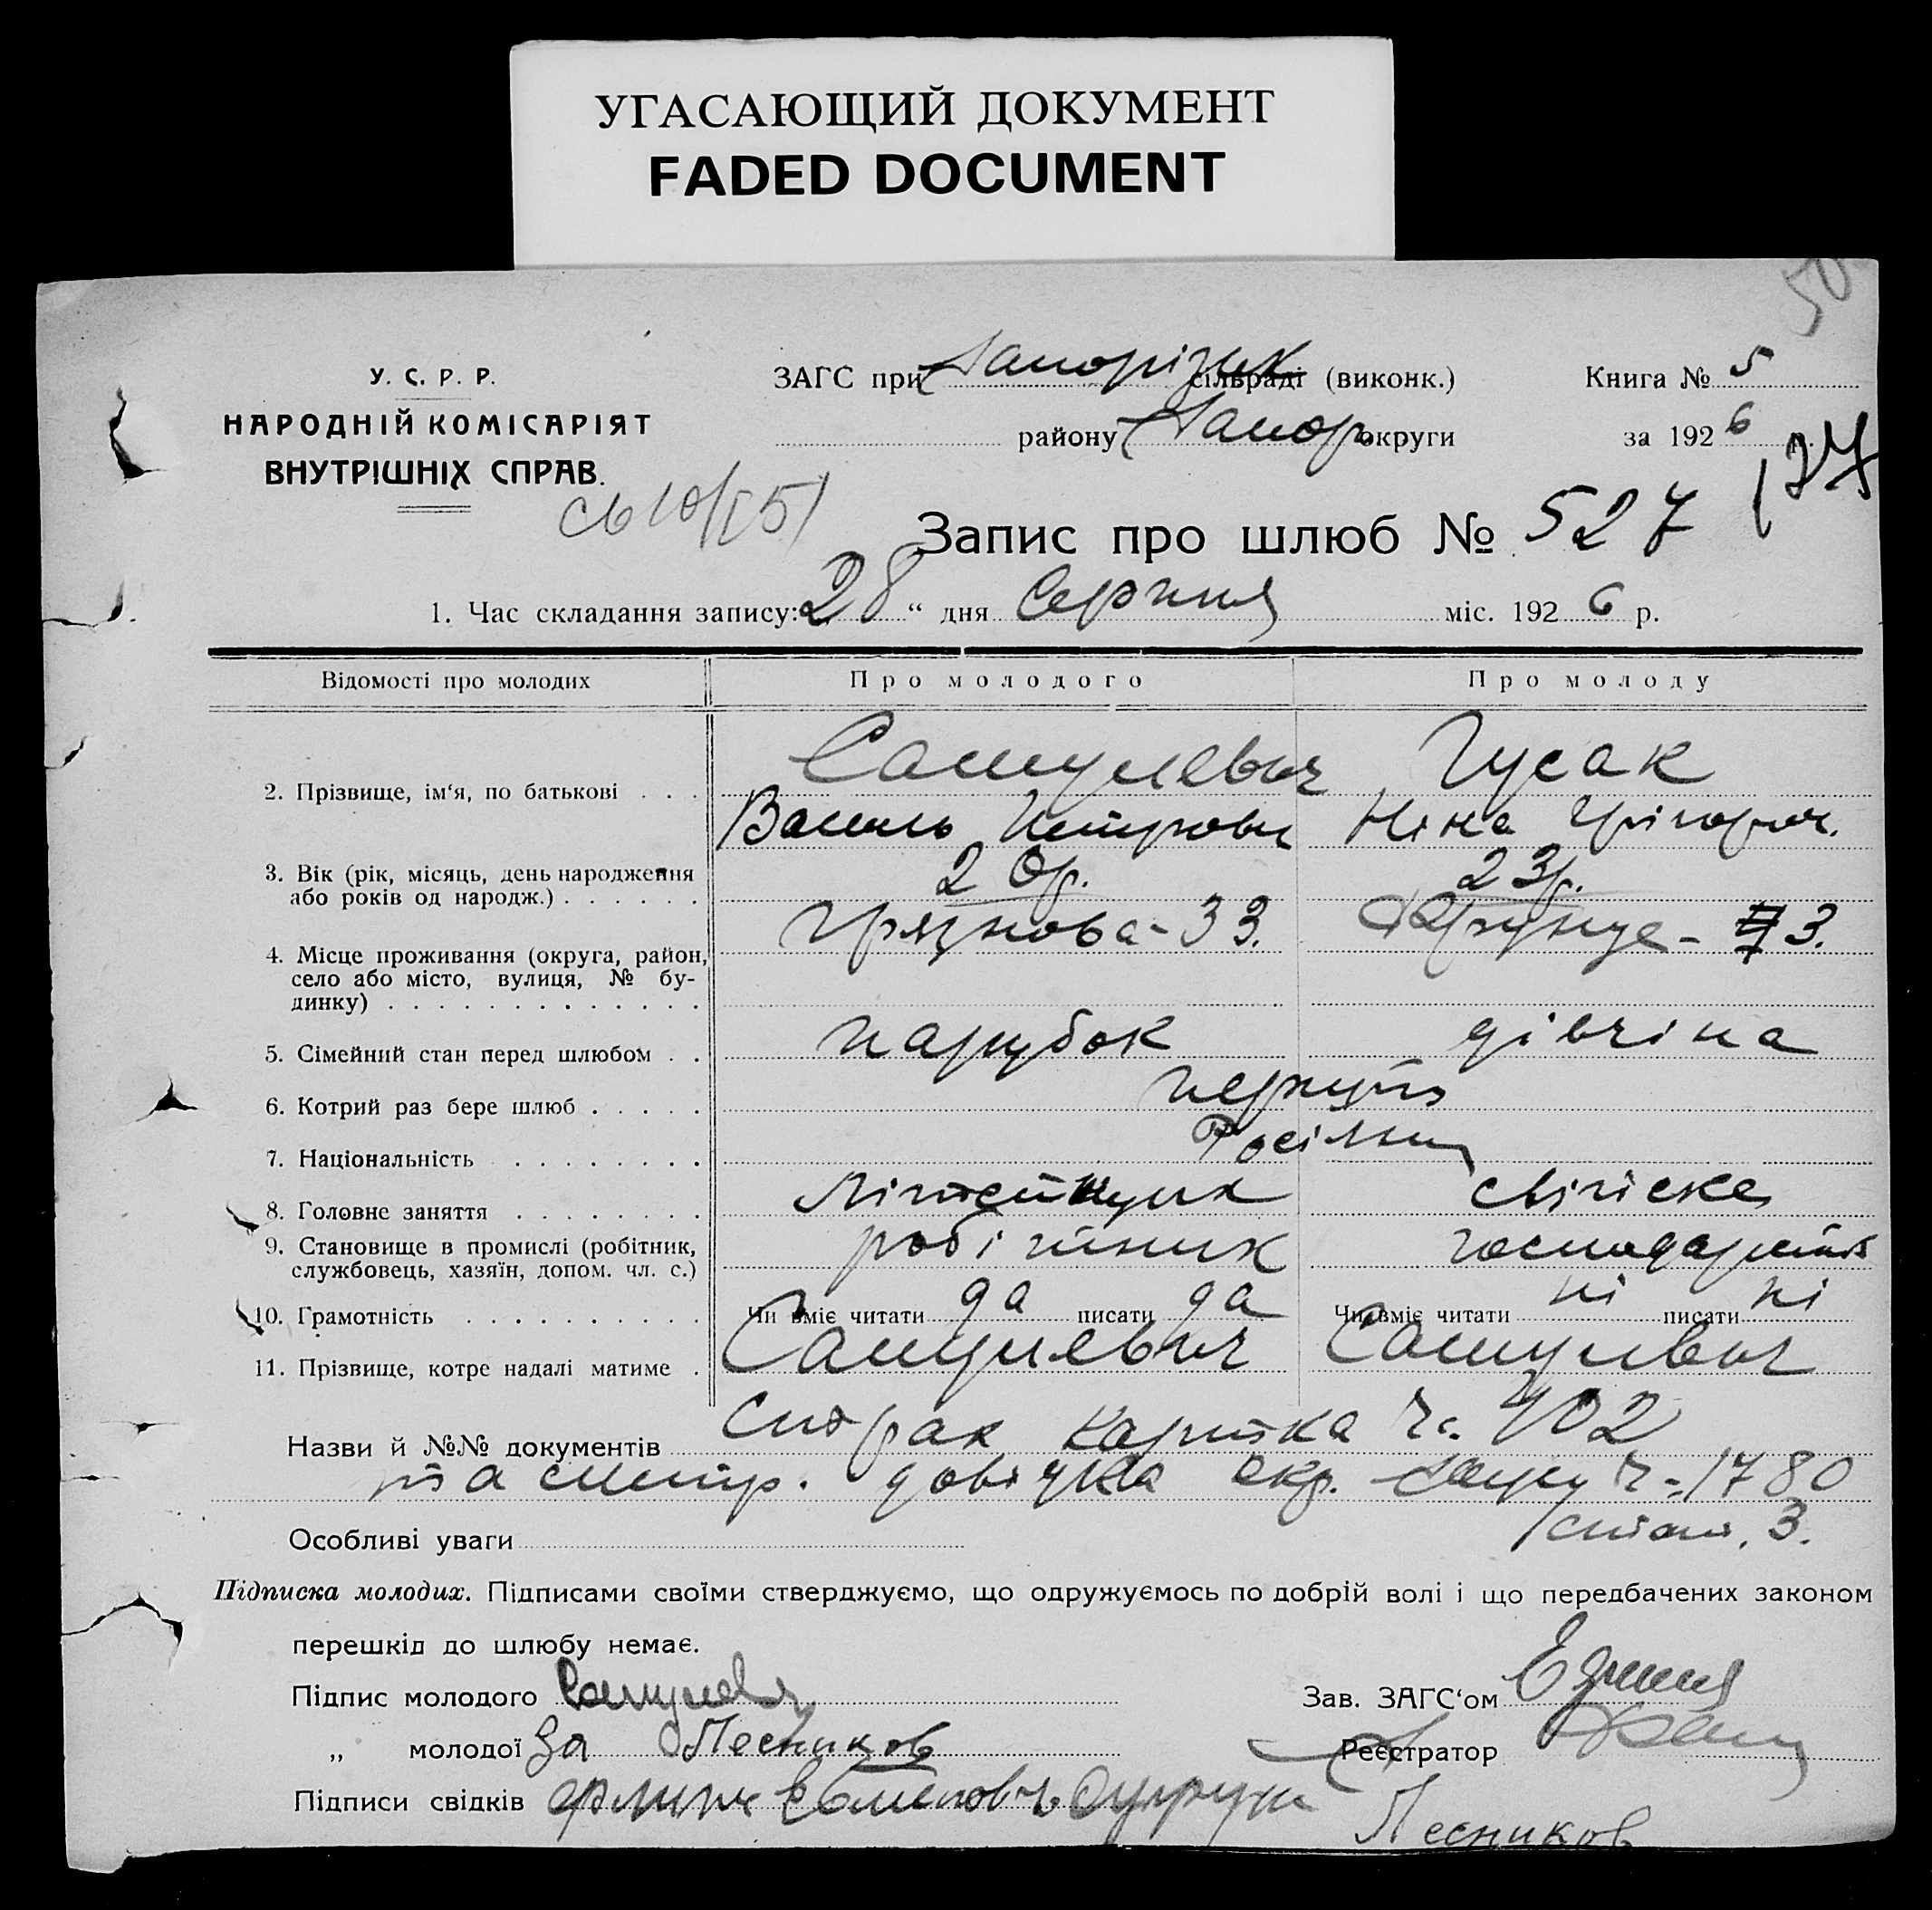 УГАСАЮЩИЙ ДОКУМЕНТ
FADED DOCUMENT
50
У. С. Р. Р.
НАРОДНІЙ КОМІСАРІЯТ
ВНУТРІШНІХ СПРАВ.
ЗАГС при Запоріжж сільраді (виконк.)
району Запор округи
Книга № 5
за 1926 р.
127
Запис про шлюб № 527
1. Час складання запису: 28 “ дня Серпня міс. 1926 р.
Відомості про молодих Про молодого Про молоду
2. Прізвище, ім‘я, по батькові . . . Сашулевич Гусак
Василь Петрович Ніна Грігороч.
3. Вік (рік, місяць, день народження або років од народж.) . . . . . . 20р. 23р.
4. Місце проживання (округа, район, село або місто, вулиця, № будинку) . . . . . . . . . . . . . Грязнова - 33. Фрунзе - 3.
5. Сімейний стан перед шлюбом . . парубок дівчіна
6. Котрий раз бере шлюб . . . . . перший
7. Національність . . . . . . . .
8. Головне заняття . . . . . . . . Літейщик
9. Становище в промислі (робітник, службовець, хазяїн, допом. чл. с.) робітник
10. Грамотність . . . . . . . . . . Чи вміє читати да писати да Чи вміє читати ні писати ні
11. Прізвище, котре надалі матиме . Сашулевич Сашулевич
Назви й №№ документів картка ч. 402
та довідка окр. ч. 1780
Особливі уваги 3.
Підписка молодих. Підписами своїми стверджуємо, що одружуємось по добрій волі і що передбачених законом
перешкід до шлюбу немає.
Підпис молодого Зав. ЗАГС‘ом
„ молодої За Песников Реєстратор
Підписи свідків
Песников